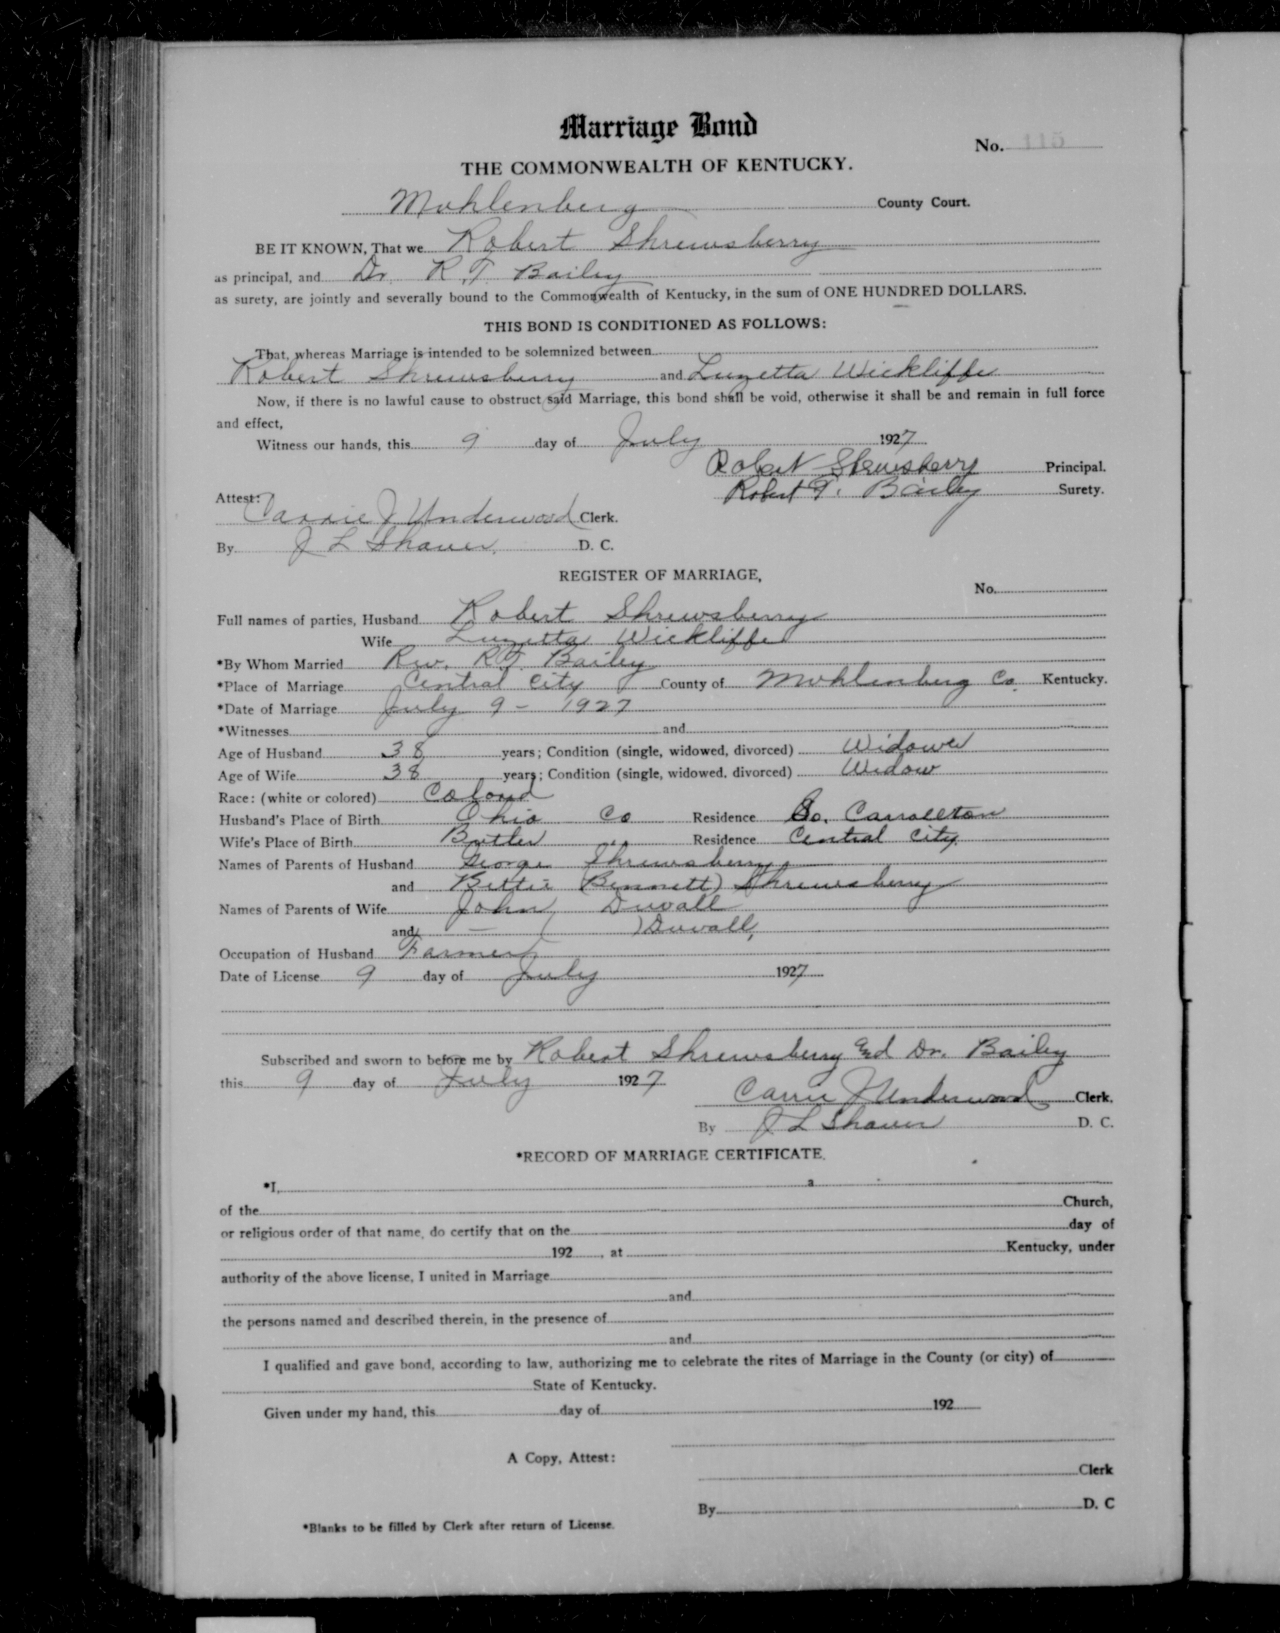 Marriage Bond
No. 115
THE COMMONWEALTH OF KENTUCKY.
Muhlenberg County Court.
BE IT KNOWN, That we Robert Shrewsberry
as principal, and Dr. R.T. Bailey
as surety, are jointly and severally bound to the Commonwealth of Kentucky, in the sum of ONE HUNDRED DOLLARS.
THIS BOND IS CONDITIONED AS FOLLOWS:
That, whereas Marriage is intended to be solemnized between
Robert Shrewsberry and Luzetta Wickliffe
Now, if there is no lawful cause to obstruct said Marriage, this bond shall be void, otherwise it shall be and remain in full force
and effect,
Witness our hands, this 9 day of July 1927
Robert Shrewsberry Principal.
Robert T. Bailey Surety.
Attest:
Carrie J Underwood Clerk.
By J L Shaver. D. C.
REGISTER OF MARRIAGE,
No.
Full names of parties, Husband Robert Shrewsberry
Wife Luzetta Wickliffe
*By Whom Married Rev. R.T. Bailey
*Place of Marriage Central City County of Muhlenberg Co. Kentucky.
*Date of Marriage July 9 - 1927
*Witnesses and
Age of Husband 38 years; Condition (single, widowed, divorced) Widower
Age of Wife 38 years; Condition (single, widowed, divorced) Widow
Race: (white or colored) Colored
Husband's Place of Birth Ohio Co Residence So. Carrollton
Wife's Place of Birth Butler " Residence Central City
Names of Parents of Husband George Shrewsberry
and Bettie (Bennett) Shrewsberry
Names of Parents of Wife John Duvall
and — ( ) Duvall,
Occupation of Husband Farmer
Date of License 9 day of July 1927
Subscribed and sworn to before me by Robert Shrewsberry and Dr. Bailey
this 9 day of July 1927
Carrie J Underwood Clerk.
By J L Shaver D. C.
*RECORD OF MARRIAGE CERTIFICATE.
*I, a
of the Church,
or religious order of that name, do certify that on the day of
192 , at Kentucky, under
authority of the above license, I united in Marriage
and
the persons named and described therein, in the presence of
and
I qualified and gave bond, according to law, authorizing me to celebrate the rites of Marriage in the County (or city) of
State of Kentucky.
Given under my hand, this day of 192
A Copy, Attest:
Clerk
By D. C
*Blanks to be filled by Clerk after return of License.